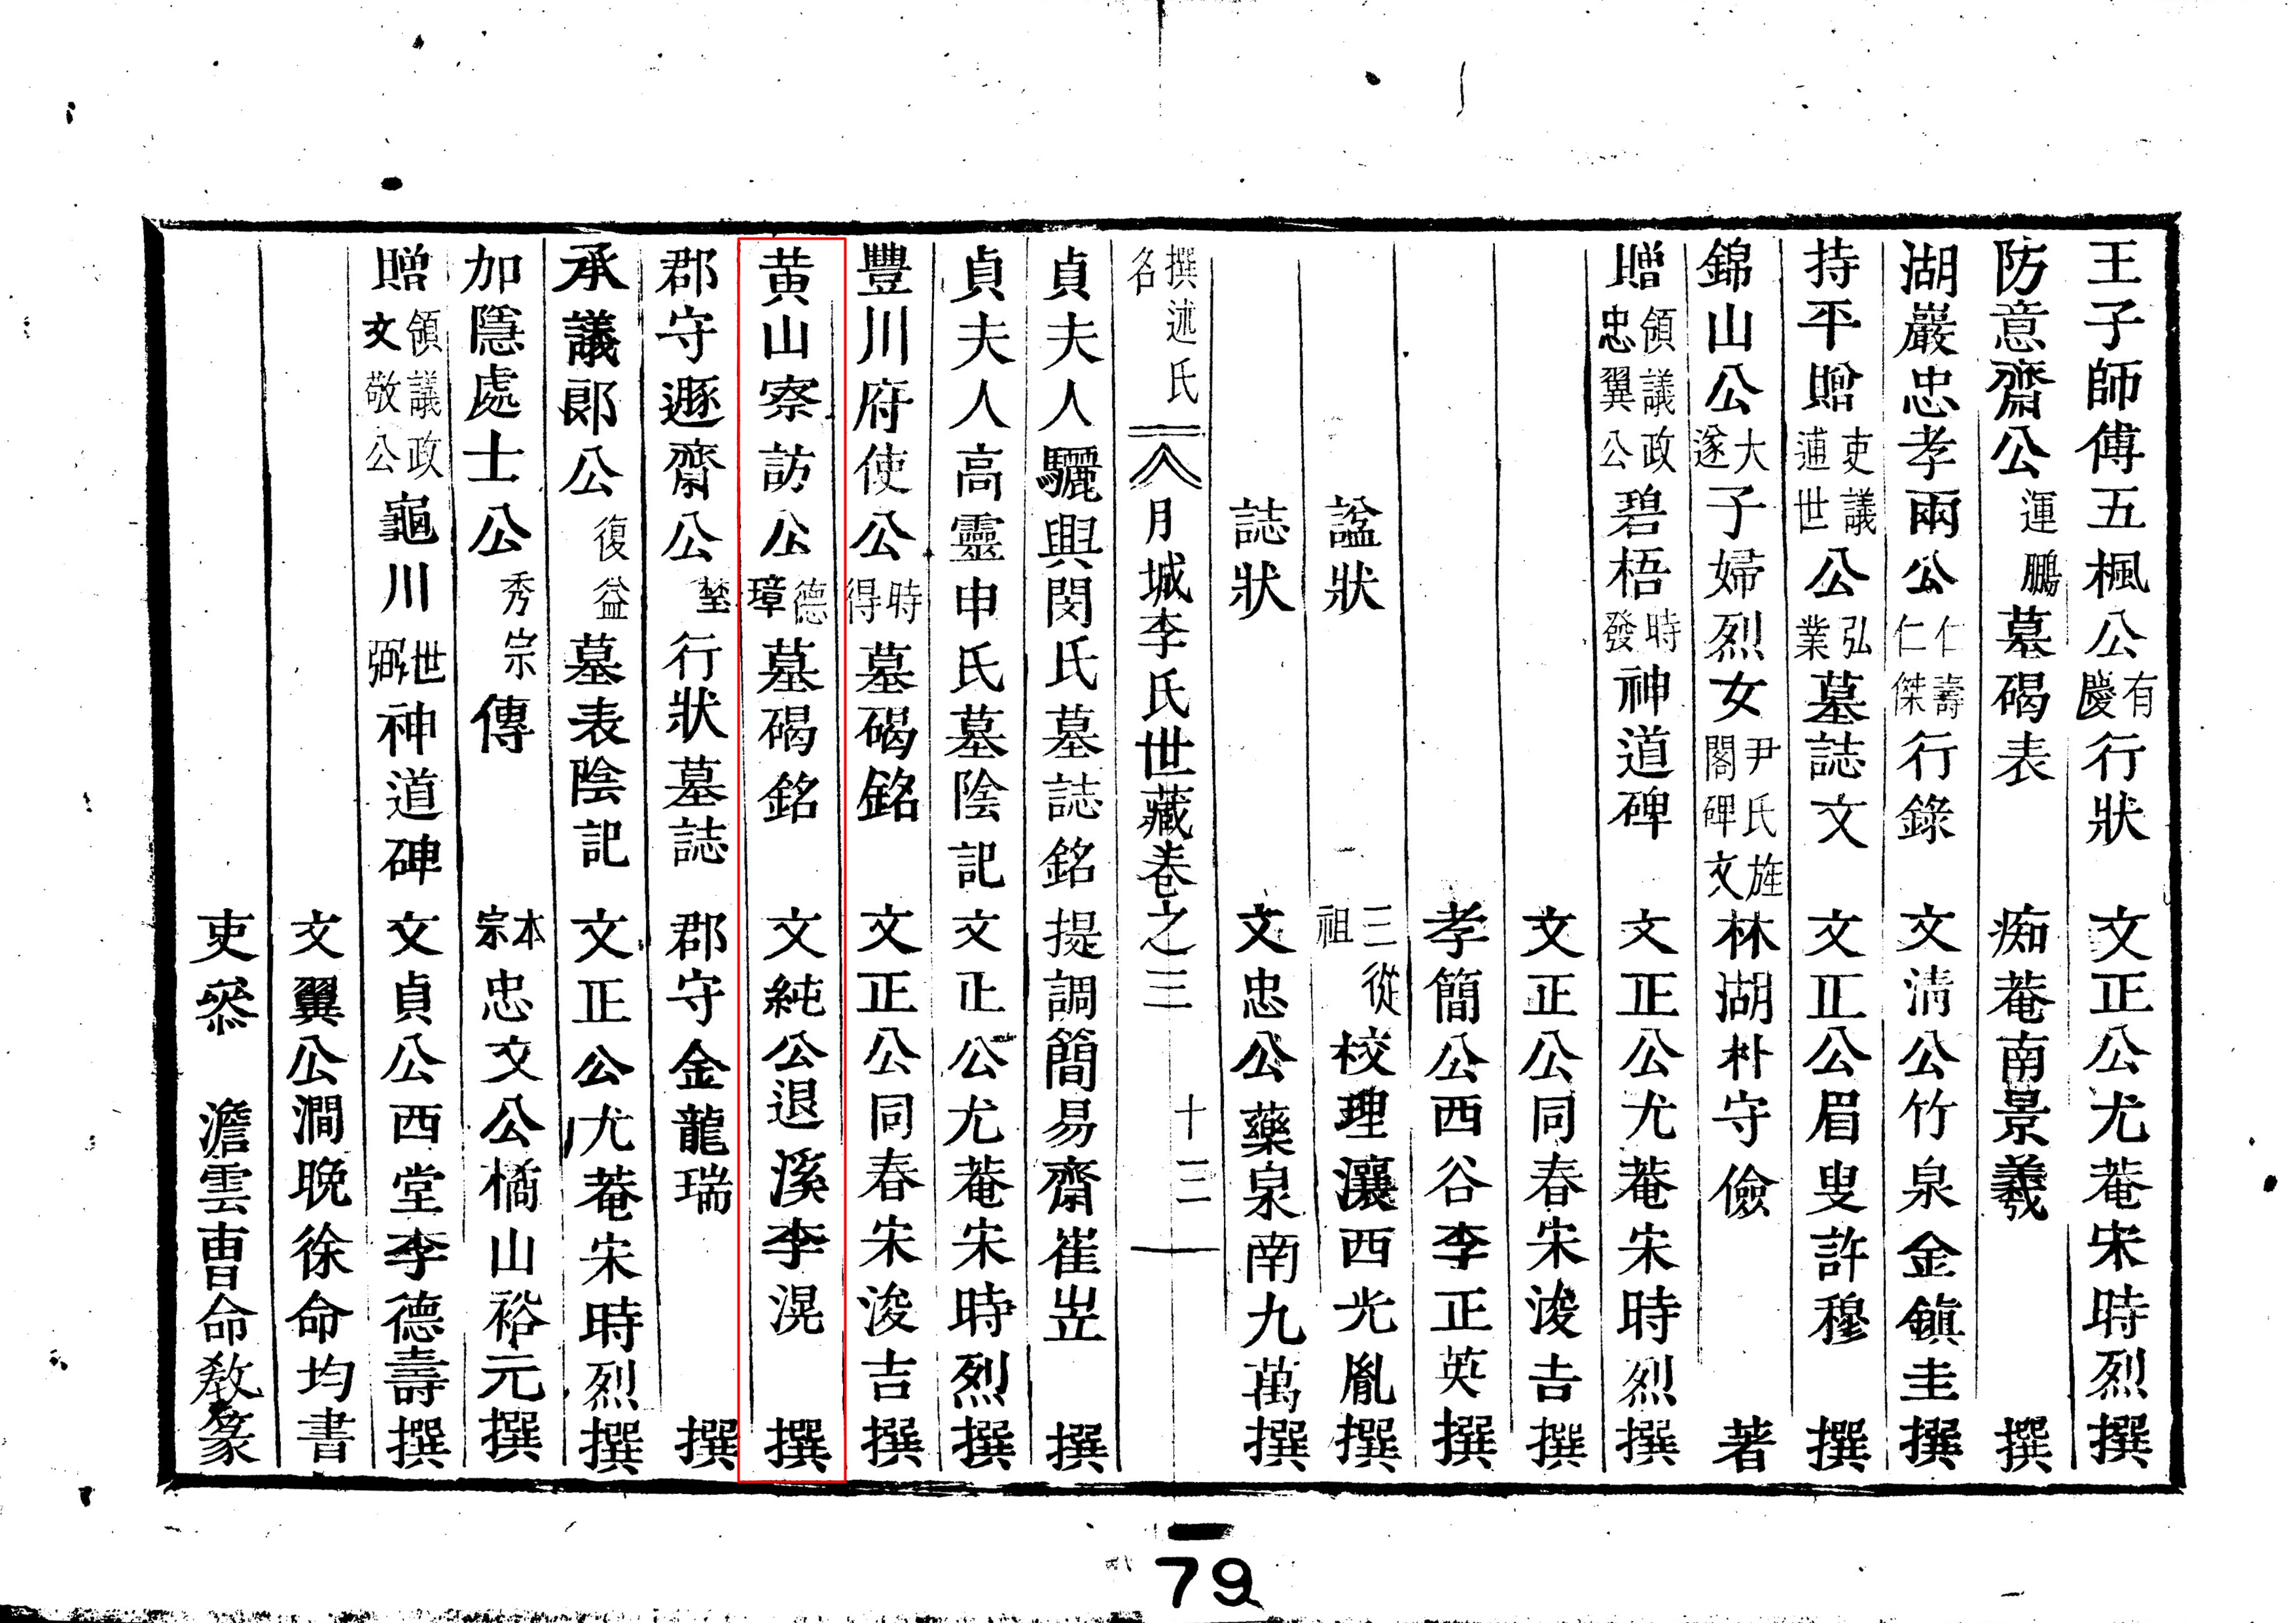 王子師傅五楓公有慶行狀 文正公尤菴宋時烈撰
防意齋公運鵬墓碣表 痴菴南景羲撰
湖巖忠孝兩公仁壽仁傑行錄 文清公竹泉金鎭圭撰
持平贈吏議逋世公弘業墓誌文 文正公眉叟許穆撰
錦山公大遂子婦烈女尹氏旌閣碑文 林湖朴守儉著
贈領議政忠翼公碧梧時發神道碑 文正公尤菴宋時烈撰
文正公同春宋浚吉撰
孝簡公西谷李正英撰
諡狀 三從祖校理瀼西光胤撰
誌狀 文忠公藥泉南九萬撰
撰述氏名 月城李氏世藏卷之三 十三
貞夫人驪興閔氏墓誌銘 提調簡易齋崔岦撰
貞夫人高靈申氏墓陰記 文正公尤菴宋時烈撰
豐川府使公時得墓碣銘 文正公同春宋浚吉撰
黃山察訪公德璋墓碣銘 文純公退溪李滉撰
郡守遯齋公埜行狀墓誌 郡守金龍瑞撰
承議郎公復益墓表陰記 文正公尤菴宋時烈撰
加隱處士公秀宗傳 本宗忠文公橘山裕元撰
贈領議政文敬公龜川世弼神道碑 文貞公西堂李德壽撰
文翼公澗晩徐命均書
吏參 澹雲曺命敎篆
79